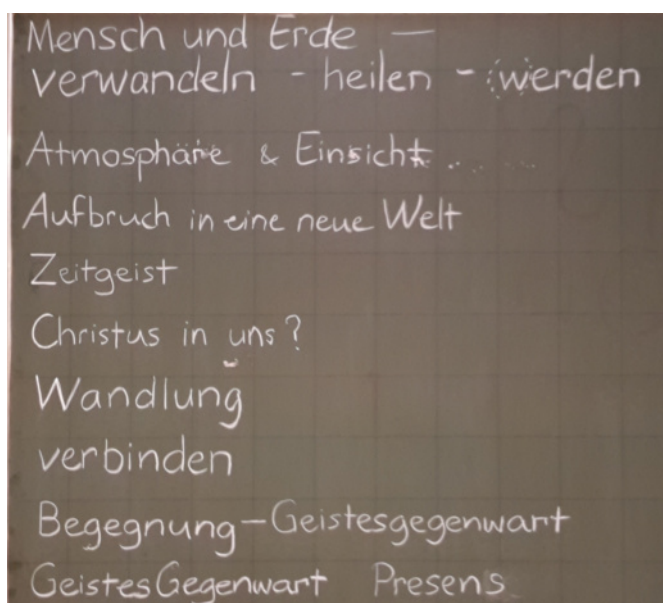 Mensch und Erde —
verwandeln - heilen - werden
Atmosphäre & Einsicht . . . ...
Aufbruch in eine neue Welt
Zeitgeist
Christus in uns?
Wandlung
verbinden
Begegnung - Geistesgegenwart
GeistesGegenwart Presens